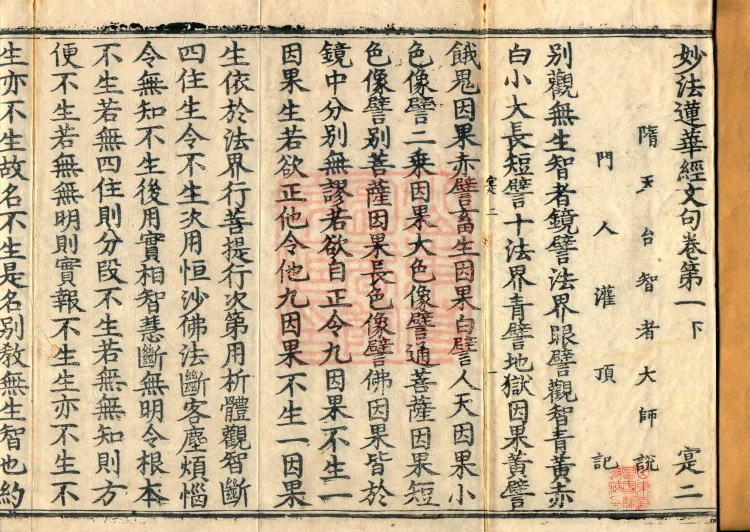 妙法蓮華經文句卷第一下 寔二
隋天台智者大師說
門人灌頂記
別觀無生智者鏡譬法界眼譬觀智青黃赤
白小大長短譬十法界青譬地獄因果黃譬
寔二 一
餓鬼因果赤譬畜生因果白譬人天因果小
色像譬二乘因果大色像譬通菩薩因果短
色像譬別菩薩因果長色像譬佛因果皆於
鏡中分別無謬若欲自正令九因果不生一
因果生若欲正他令他九因果不生一因果
生依於法界行菩提行次第用析體觀智斷
四住生令不生次用恒沙佛法斷客塵煩惱
令無知不生後用實相智慧斷無明令根本
不生若無四住則分段不生若無無知則方
便不生若無無明則實報不生生亦不生不
生亦不生故名不生是名別教無生智也約